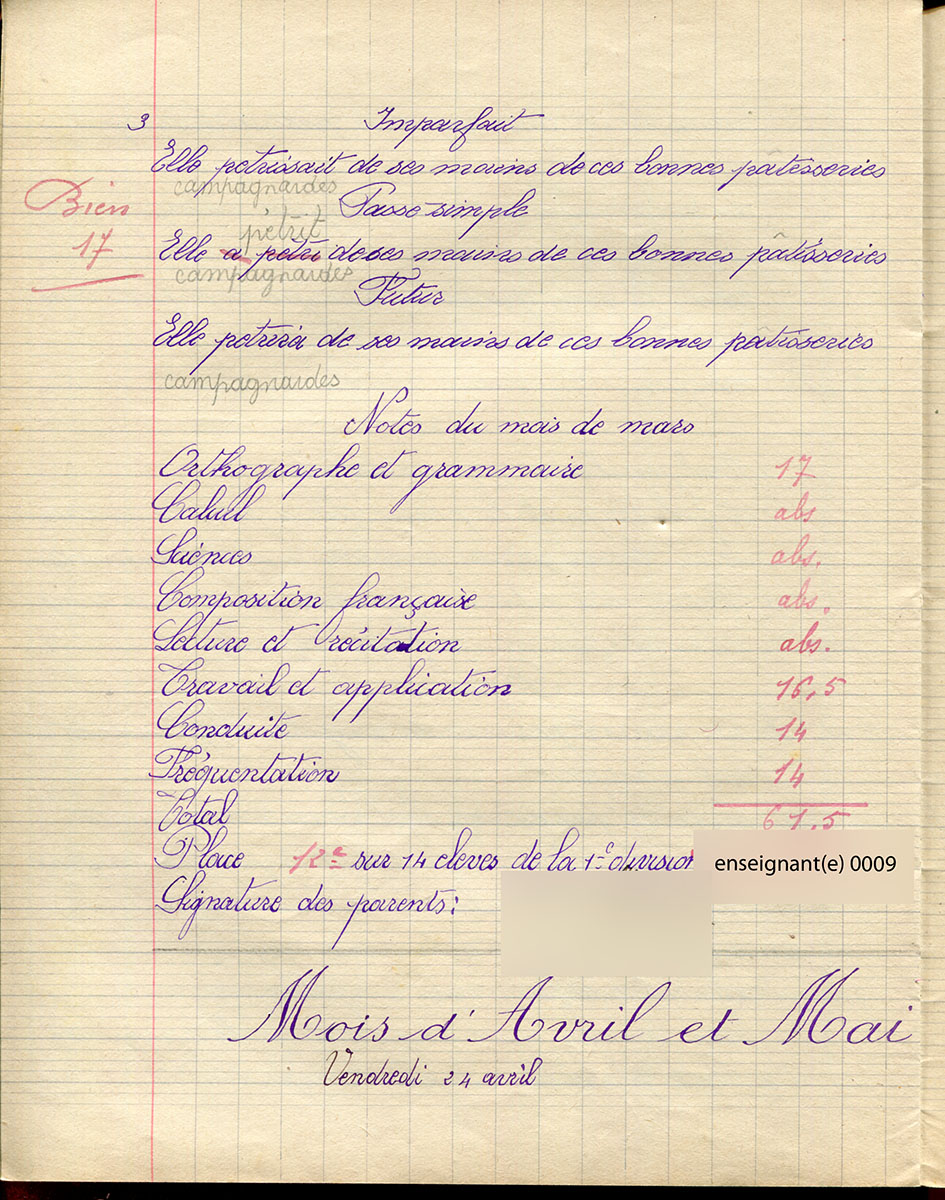 3 Imparfait
Elle petrisait de ses mains de ces bonnes patisseries
campagnardes
Bien
Passe simple
pétrit
17
Elle a petri de ses mains de ces bonnes pâtisseries
campagnardes
Futur
Elle petrira de ses mains de ces bonnes patisseries
campagnardes
Notes du mois de mars
Orthographe et grammaire 17
Calcul abs
Sciences abs.
Composition française abs.
Lecture et récitation abs.
Travail et application 16,5
Conduite 14
Fréquentation 14
Total 61.5
Place 12e sur 14 eleves de la 1e division enseignant(e) 0009
Signature des parents:
Mois d'Avril et Mai
Vendredi 24 avril